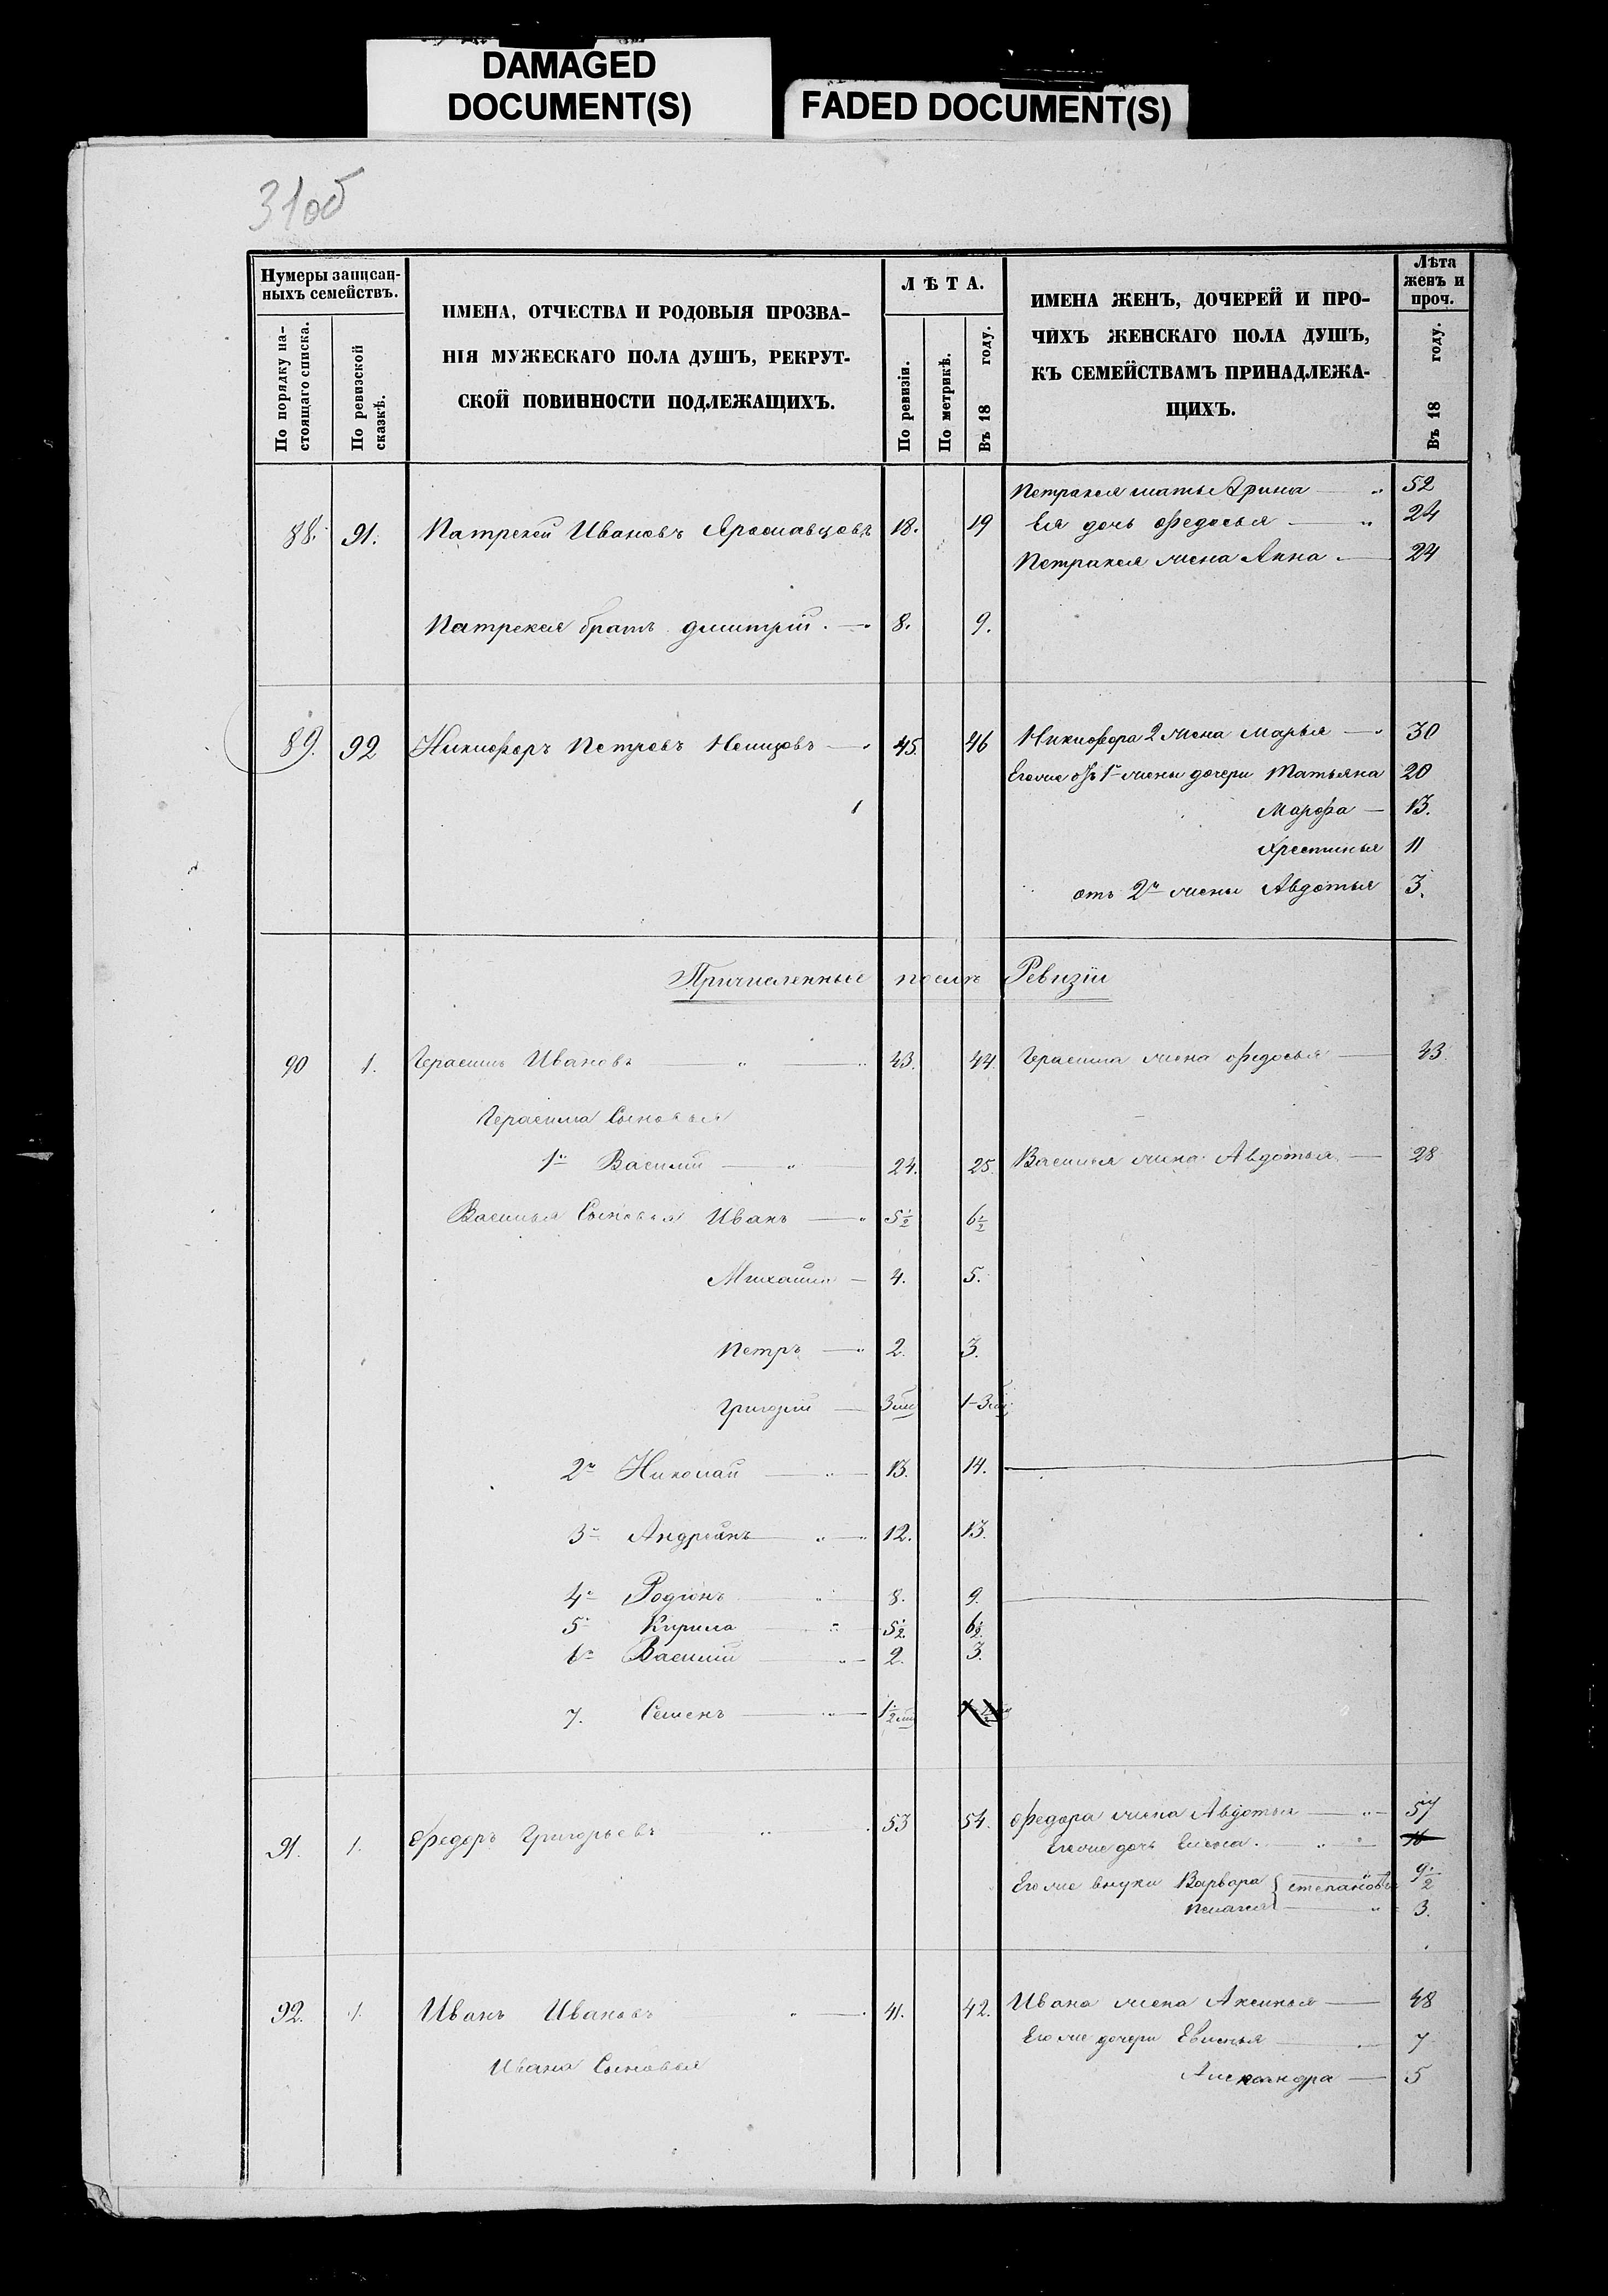 DAMAGED
DOCUMENT(S)
FADED DOCUMENT(S)
31об
Нумеры записан-
ныхъ семействъ.
По порядку на-
стоящаго списка.
По ревизской
сказкѣ.
ИМЕНА, ОТЧЕСТВА И РОДОВЫЯ ПРОЗВА-
НІЯ МУЖЕСКАГО ПОЛА ДУШЪ, РЕКРУТ-
СКОЙ ПОВИННОСТИ ПОДЛЕЖАЩИХЪ.
ЛѢТА.
По ревизіи.
По метрикѣ.
Въ 18 году.
ИМЕНА ЖЕНЪ, ДОЧЕРЕЙ И ПРО-
ЧИХЪ ЖЕНСКАГО ПОЛА ДУШЪ,
КЪ СЕМЕЙСТВАМЪ ПРИНАДЛЕЖА-
ЩИХЪ.
Лѣта
женъ и
проч.
Въ 18 году.
Петракея мать Арина 52
88. 91. Патрекей Ивановъ Ярославцовъ 18. 19 Ея дочь Федосья 24
Петракея жена Анна 24
Патрекея братъ Дмитрій 8. 9.
89. 92 Никифоръ Петровъ Немцовъ 45. 46 Никифора 2 жена Марья 30
Его же отъ 1й жены дочери Татьяна 20
1 Марфа 13.
Хрестинья 11
отъ 2й жены Авдотья 3.
Причисленные послѣ Ревизіи
90 1. Герасимъ Ивановъ 43. 44. Герасима жена Федосья 43.
Герасима Сыновья
1й Василий 24. 25. Василья жена Авдотья 28
Василья Сыновья Иванъ 5½ 6½
Михайла 4. 5.
Петръ 2. 3.
Григорий 3 м 1-3 м
2й Николай 13. 14.
3й Андреянъ 12. 13.
4й Родіонъ 8. 9.
5й Кирила 5½. 6½.
6й Василий 2. 3.
7. Семенъ 1½ м
91. 1. Федоръ Григорьевъ 53 54. Федора жена Авдотья 57
Его же дочь Елена 16
Его же внуки Варвара } Степановы 9½
Пелагея 3.
92. 1. Иванъ Ивановъ 41. 42. Ивана жена Аксинья 48
Его же дочери Евгенья 7
Ивана Сыновья
Александра 5